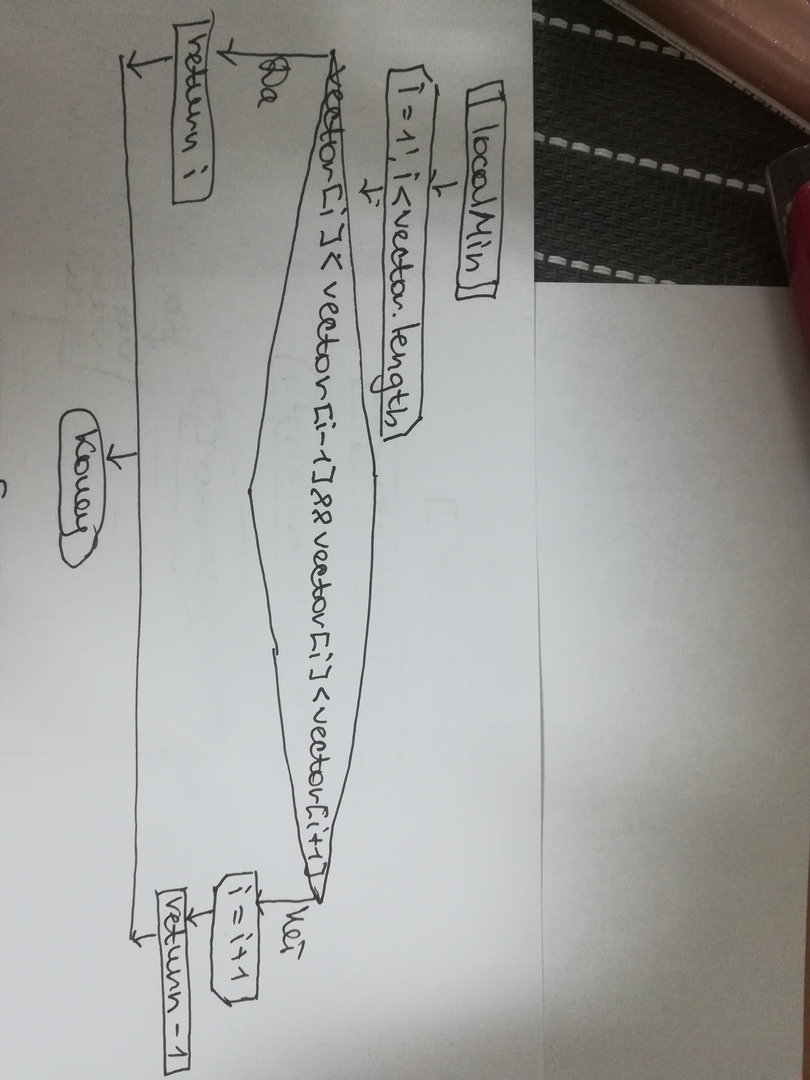 localMin
i = 1; i < vector.length
vector[i] < vector[i-1] && vector[i] < vector[i+1]
Да
Нет
i = i+1
return i
return -1
Конец